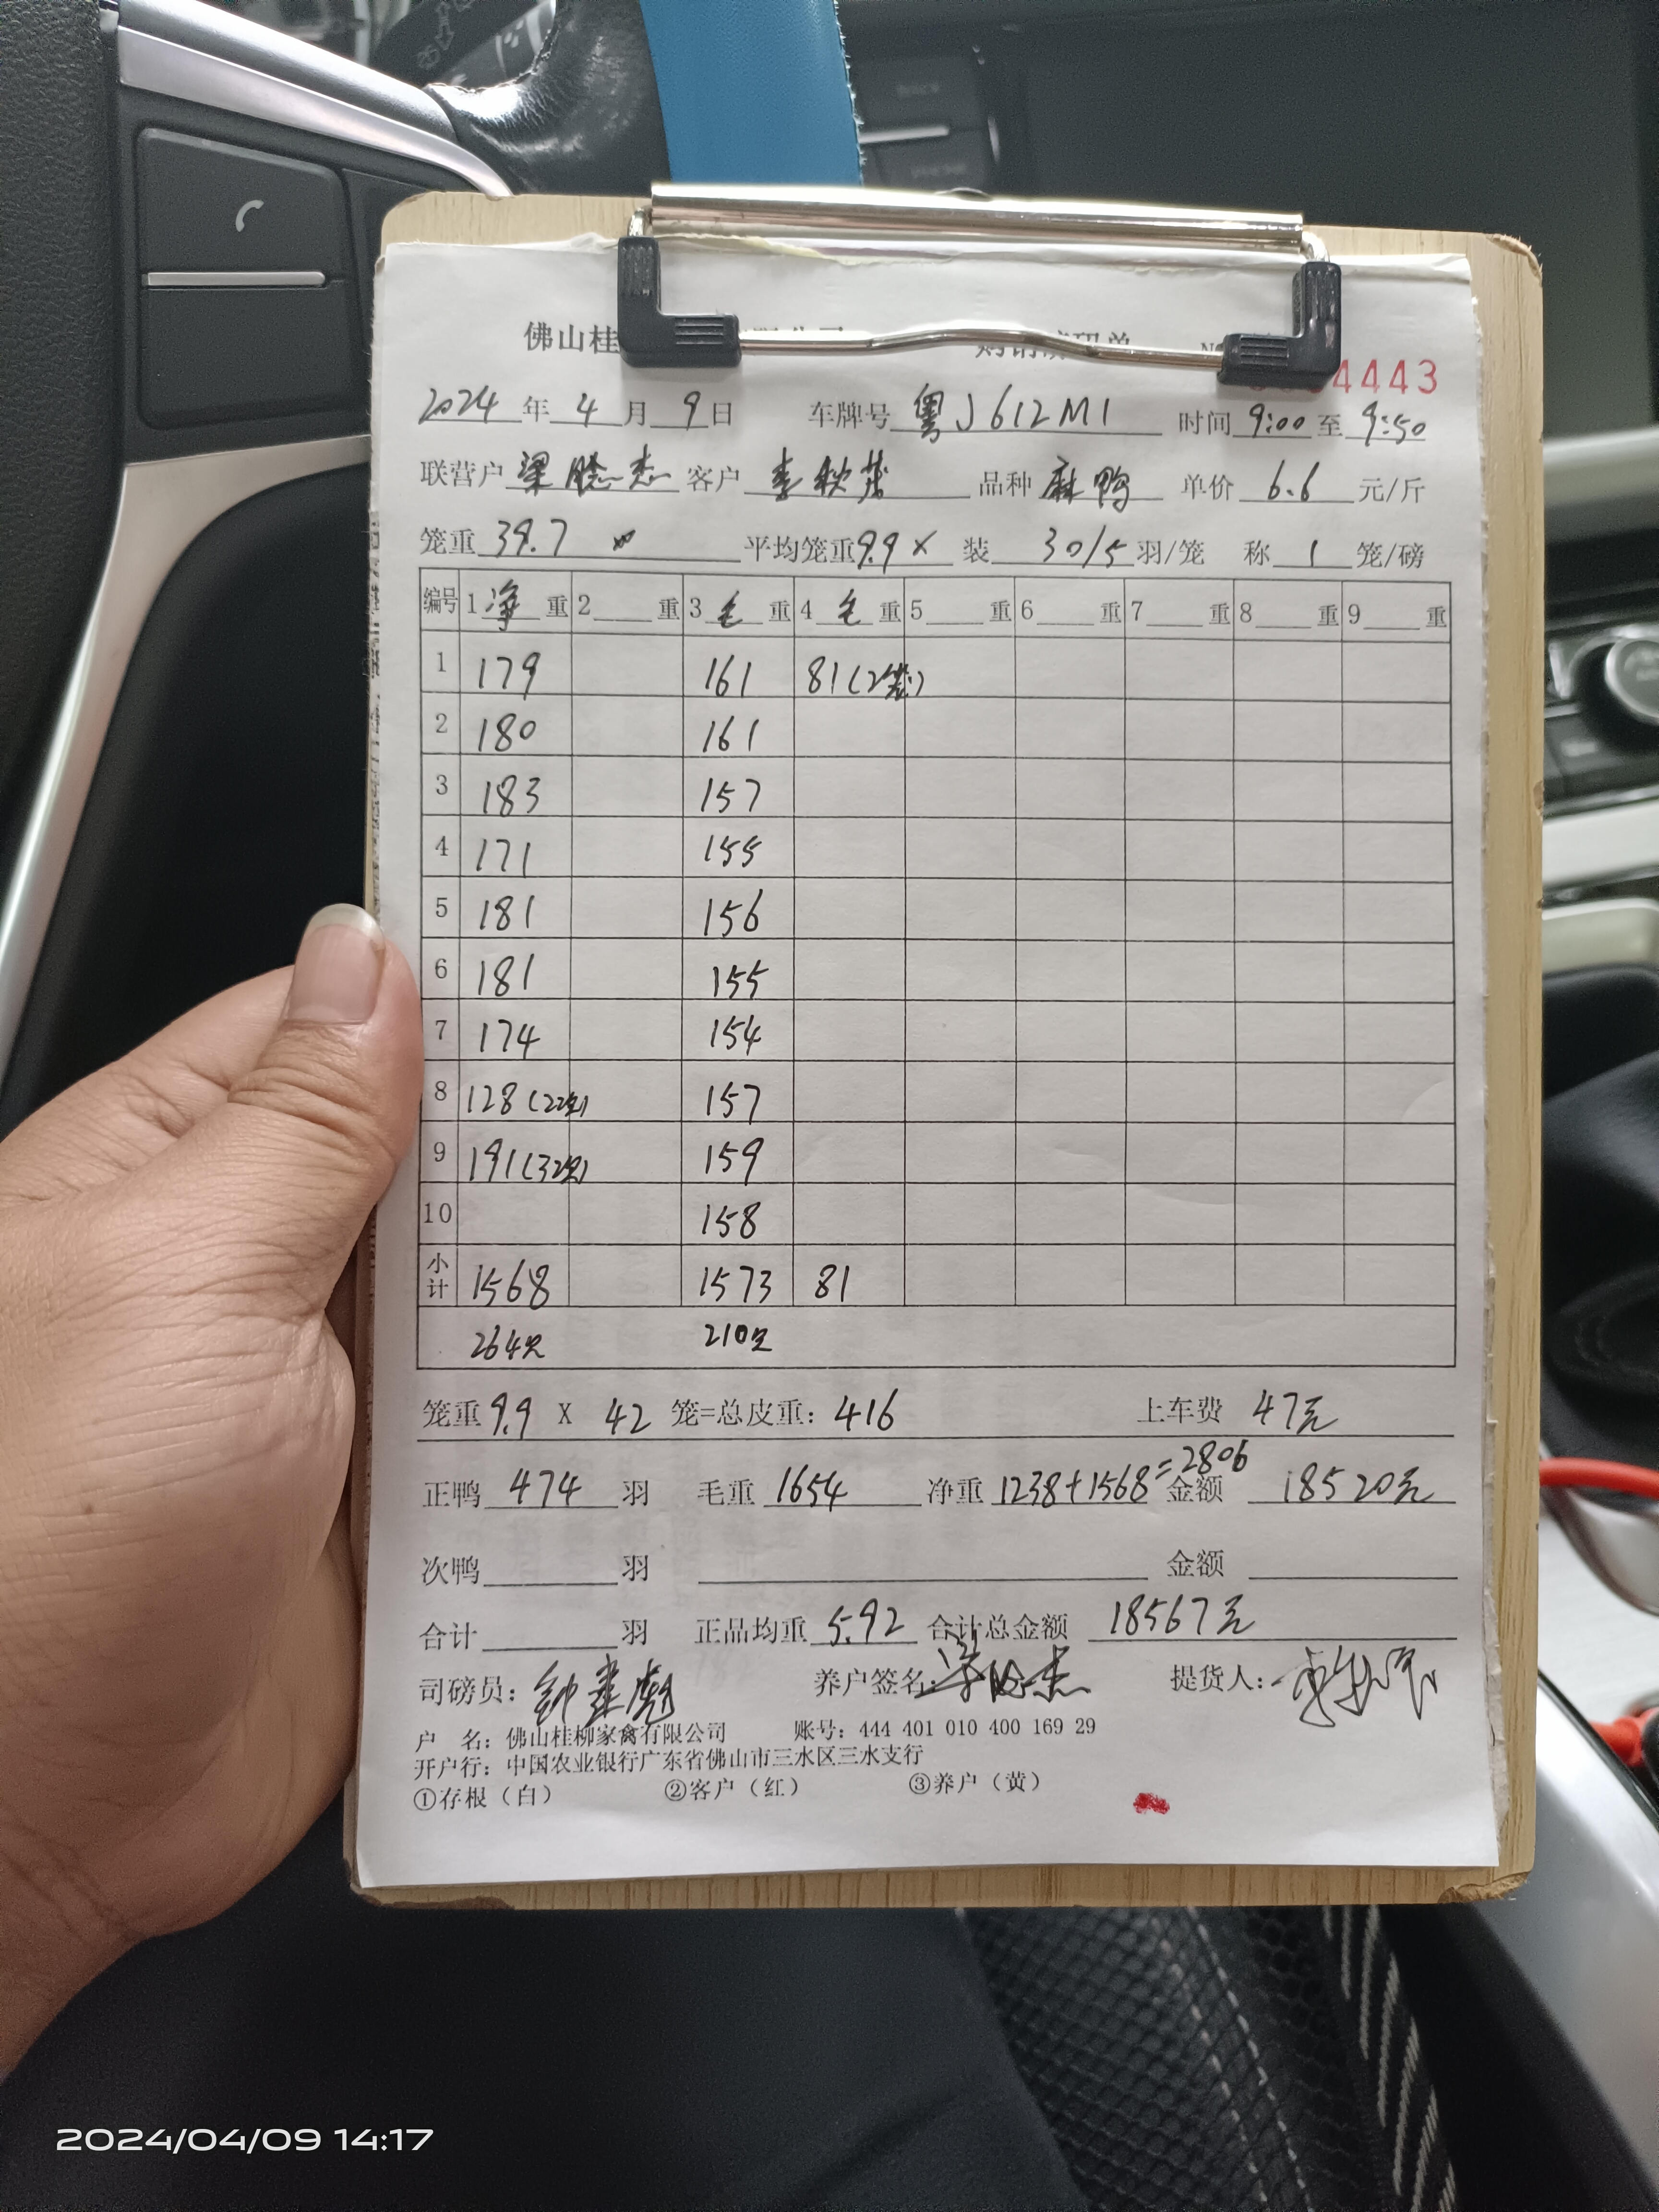 佛山桂
4443
2024 年 4 月 9 日 车牌号 粤J612M1 时间 9:00 至 9:50
联营户 梁 杰 客户 李秋 品种 麻鸭 单价 6.6 元/斤
笼重 39.7 平均笼重 9.9 × 装 30/5 羽/笼 称 1 笼/磅
编号 1 净 重 2 重 3 毛 重 4 毛 重 5 重 6 重 7 重 8 重 9 重
1 179 161 81(2笼)
2 180 161
3 183 157
4 171 155
5 181 156
6 181 155
7 174 154
8 128(22只) 157
9 191(32只) 159
10 158
小计 1568 1573 81
264只 210只
笼重 9.9 X 42 笼=总皮重: 416 上车费 47元
正鸭 474 羽 毛重 1654 净重 1238+1568=2806 金额 18520元
次鸭 羽 金额
合计 羽 正品均重 5.92 合计总金额 18567元
司磅员: 养户签名: 提货人:
户 名: 佛山桂柳家禽有限公司 账号: 444 401 010 400 169 29
开户行: 中国农业银行广东省佛山市三水区三水支行
①存根（白） ②客户（红） ③养户（黄）
2024/04/09 14:17